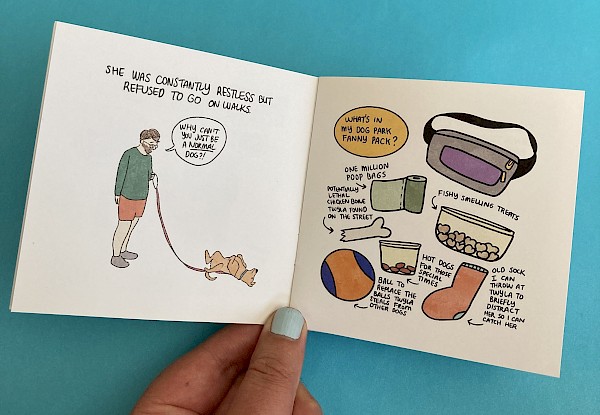 SHE WAS CONSTANTLY RESTLESS BUT
REFUSED TO GO ON WALKS.
WHY CAN'T
YOU JUST BE
A NORMAL
DOG?!
WHAT'S IN
MY DOG PARK
FANNY PACK?
ONE MILLION
POOP BAGS
POTENTIALLY
LETHAL
CHICKEN BONE
TWYLA FOUND
ON THE STREET
FISHY SMELLING TREATS
HOT DOGS
FOR THOSE
SPECIAL
TIMES
BALL TO
REPLACE THE
BALLS TWYLA
STEALS FROM
OTHER DOGS
OLD SOCK
I CAN
THROW AT
TWYLA TO
BRIEFLY
DISTRACT
HER SO I CAN
CATCH HER